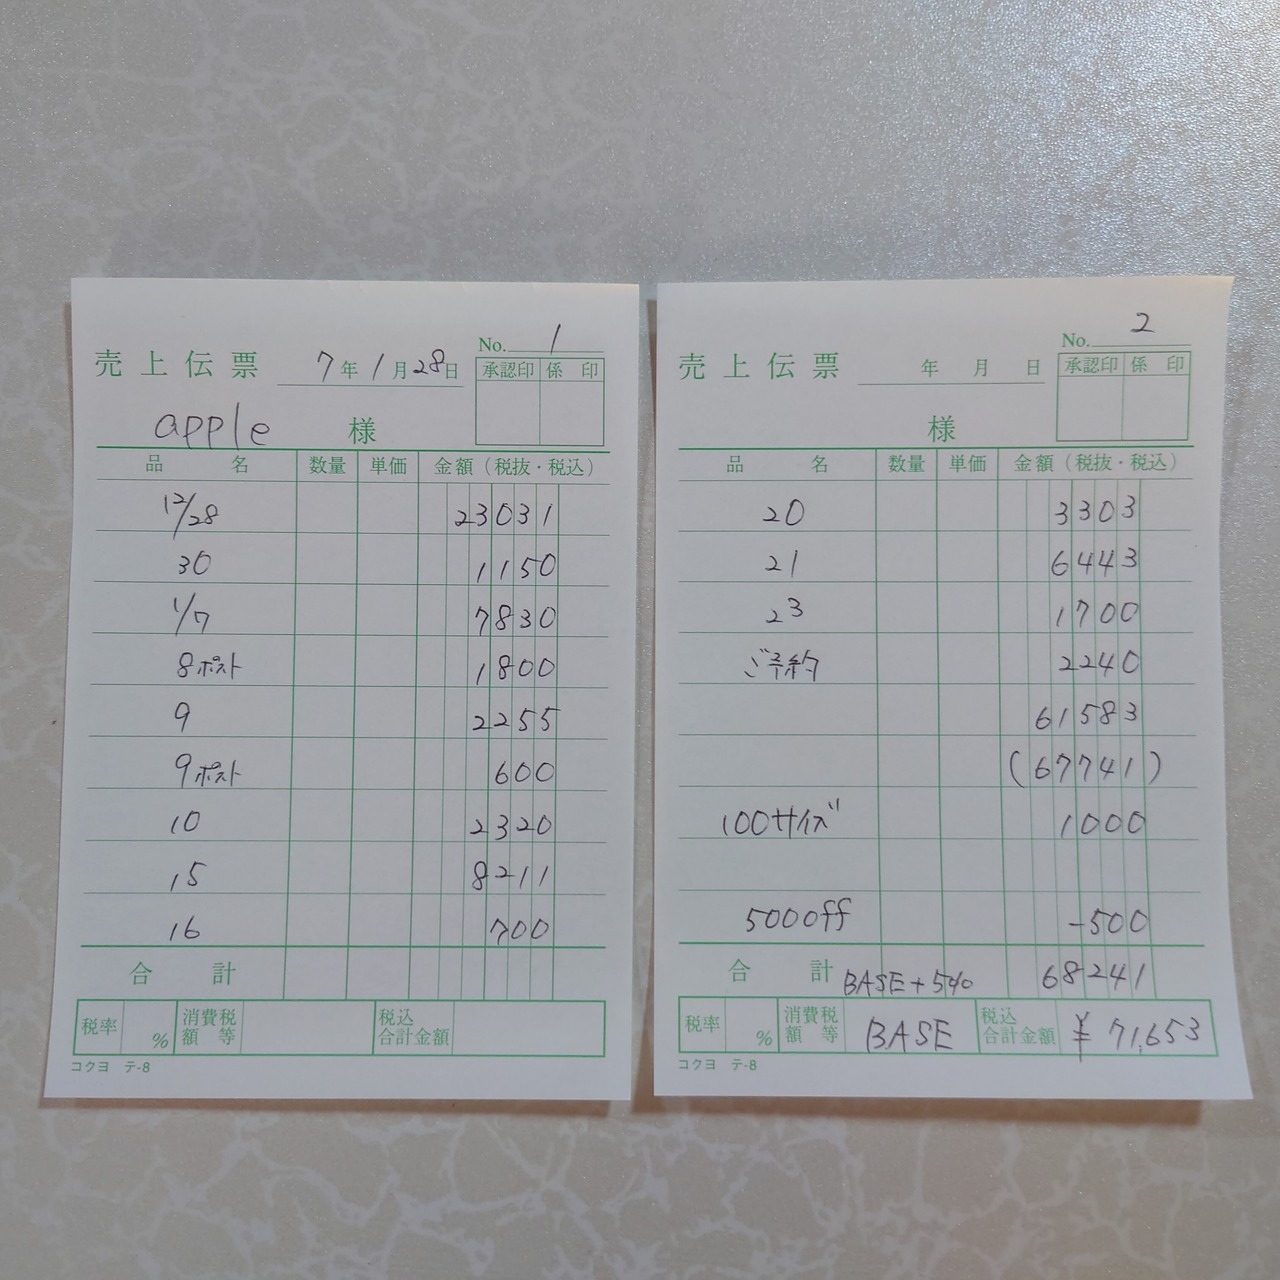 No. 1
売上伝票 7年1月28日
承認印 係印
apple 様
品名 数量 単価 金額(税抜・税込)
12/28 23031
30 1150
1/7 7830
8ポスト 1800
9 2255
9ポスト 600
10 2320
15 8211
16 700
合計
税率 % 消費税額等 税込合計金額
コクヨ テ-8
No. 2
売上伝票 年 月 日
承認印 係印
様
品名 数量 単価 金額(税抜・税込)
20 3303
21 6443
23 1700
ご予約 2240
61583
(67741)
100サイズ 1000
500off -500
合計 BASE+5% 68241
税率 % 消費税額等 BASE 税込合計金額 ¥71,653
コクヨ テ-8